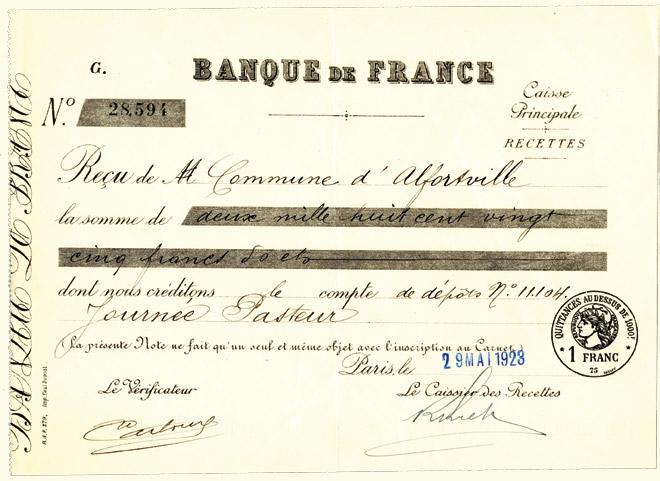 G.
BANQUE DE FRANCE
N.º 28,594
Caisse
Principale
RECETTES
Reçu de M Commune d'Alfortville
la somme de deux mille huit cent vingt
cinq francs 80 cts
dont nous créditons le compte de dépôts Nº 11.104.
Journée Pasteur
(La présente Note ne fait qu'un seul et même objet avec l'inscription au Carnet.)
Paris, le 29 MAI 1923
QUITTANCES AU DESSUS DE 1000F
1 FRANC
75
Le Vérificateur
Le Caissier des Recettes
BANQUE DE FRANCE
B.d.F. 279. Imp. Paul Dupont.